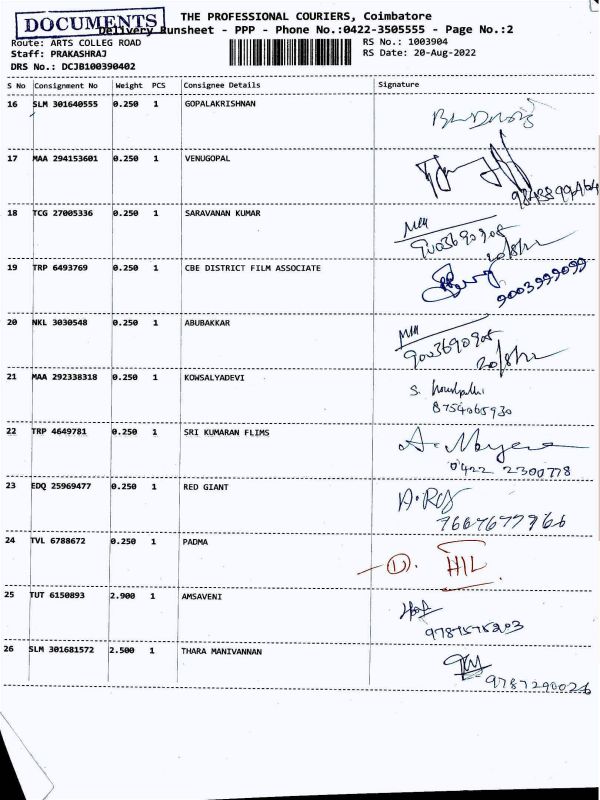 DOCUMENTS
THE PROFESSIONAL COURIERS, Coimbatore
Delivery Runsheet - PPP - Phone No.:0422-3505555 - Page No.:2
Route: ARTS COLLEG ROAD
RS No.: 1003904
Staff: PRAKASHRAJ
RS Date: 20-Aug-2022
DRS No.: DCJB100390402
S No Consignment No Weight PCS Consignee Details Signature
16 SLM 301640555 0.250 1 GOPALAKRISHNAN
17 MAA 294153601 0.250 1 VENUGOPAL
18 TCG 27005336 0.250 1 SARAVANAN KUMAR
9003690905
20/8/22
19 TRP 6493769 0.250 1 CBE DISTRICT FILM ASSOCIATE
9003999099
20 NKL 3030548 0.250 1 ABUBAKKAR
9003690905
20/8/22
21 MAA 292338318 0.250 1 KOWSALYADEVI
8754065930
22 TRP 4649781 0.250 1 SRI KUMARAN FLIMS
0422 2300778
23 EDQ 25969477 0.250 1 RED GIANT
7667677966
24 TVL 6788672 0.250 1 PADMA
25 TUT 6150893 2.900 1 AMSAVENI
9787575203
26 SLM 301681572 2.500 1 THARA MANIVANNAN
9787290026